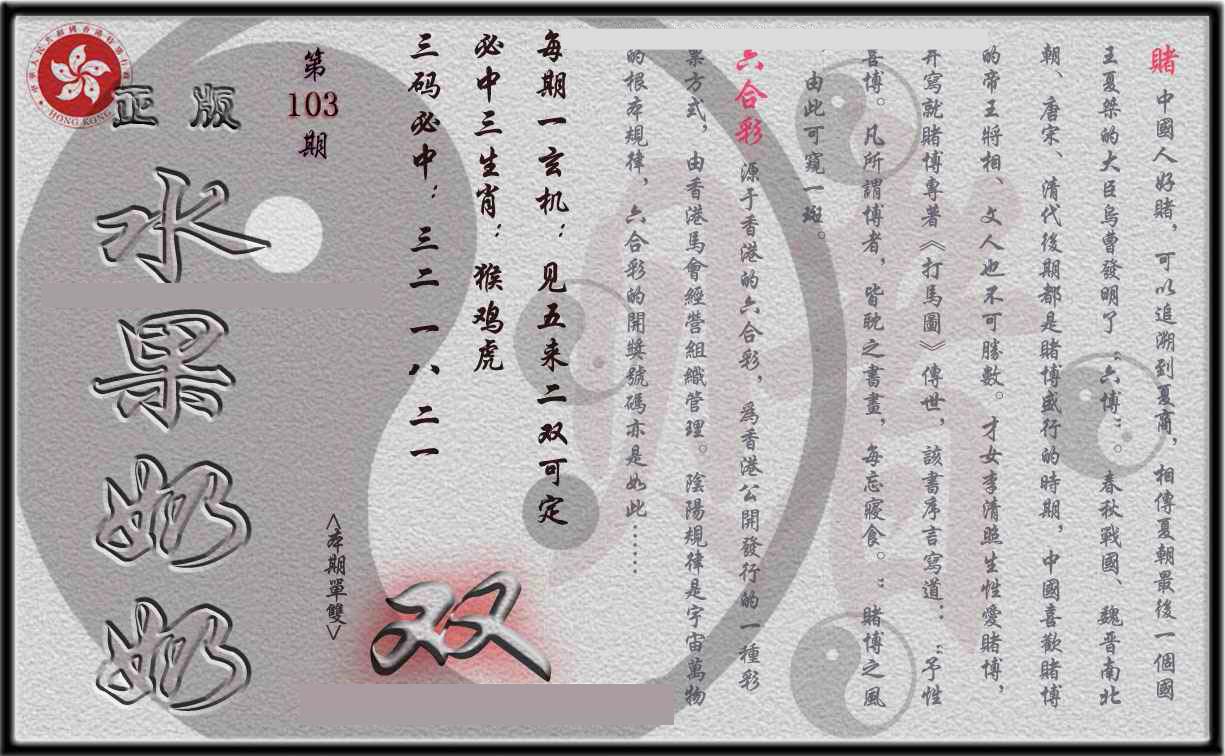 賭 中國人好賭，可以追溯到夏商，相傳夏朝最後一個國
王夏桀的大臣烏曹發明了“六博”。春秋戰國、魏晉南北
朝、唐宋、清代後期都是賭博盛行的時期，中國喜歡賭博
的帝王將相、文人也不可勝數。才女李清照生性愛賭博，
并寫就賭博專著《打馬圖》傳世，該書序言寫道：“予性
喜博。凡所謂博者，皆耽之晝，每忘寢食。”賭博之風
由此可窺一斑。
六合彩 源于香港的六合彩，為香港公開發行的一種彩
票方式，由香港馬會經營組織管理。陰陽規律是宇宙萬物
的根本規律，六合彩的開獎號碼亦是如此……
每期一玄机：见五来二双可定
必中三生肖：猴鸡虎
三码必中：三二 一八 二一
第
103
期
<本期單雙>
双
正版
水果奶奶
HONG KONG